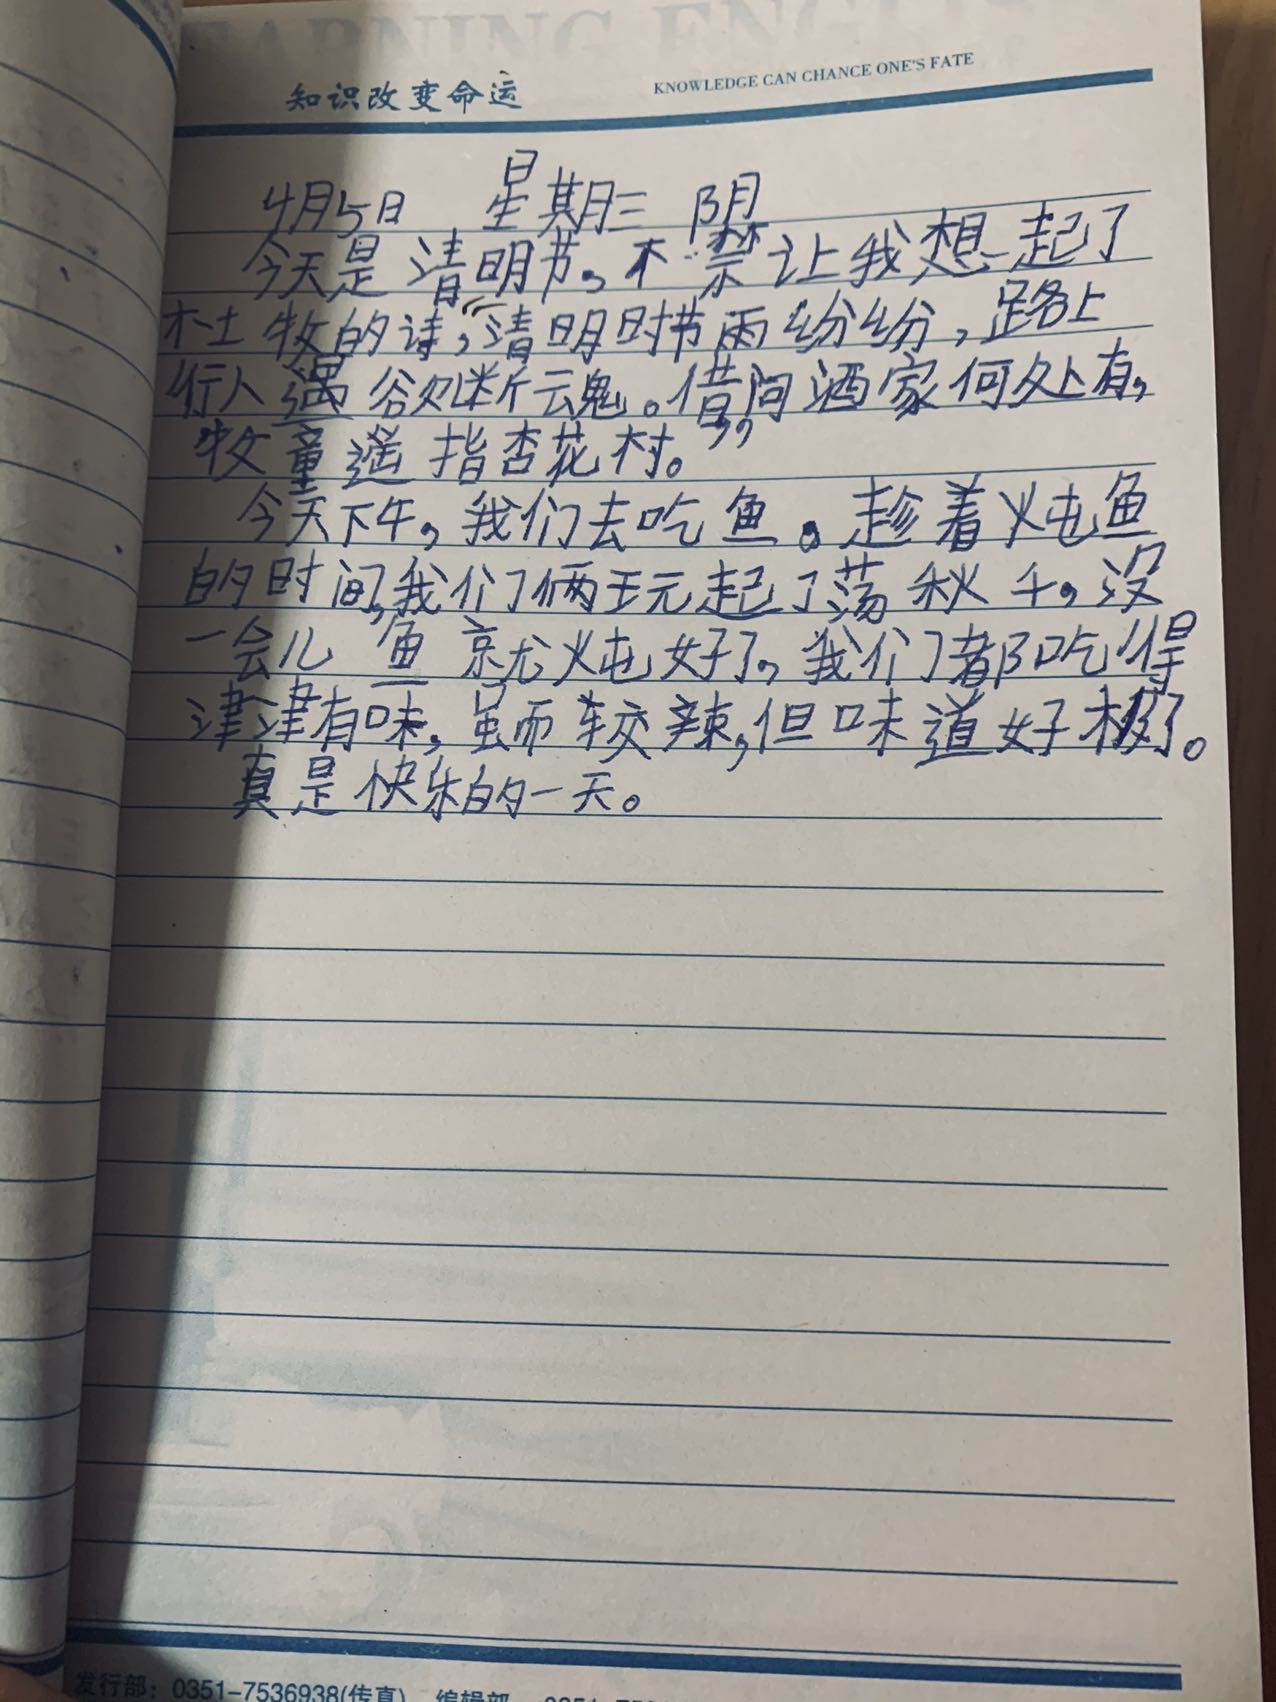 ARNING ENGLIS
知识改变命运 KNOWLEDGE CAN CHANCE ONE'S FATE
4月5日 星期三 阴
今天是清明节。不禁让我想起了
杜牧的诗，“清明时节雨纷纷，路上
行人遇欲断云鬼。借问酒家何处有，
牧童遥指杏花村。”
今天下午，我们去吃鱼。趁着炖鱼
的时间，我们俩玩起了荡秋千。没
一会儿鱼就炖好了，我们都吃得
津津有味，虽而较辣，但味道好极了。
真是快乐的一天。
发行部：0351-7536938(传真) 编辑部